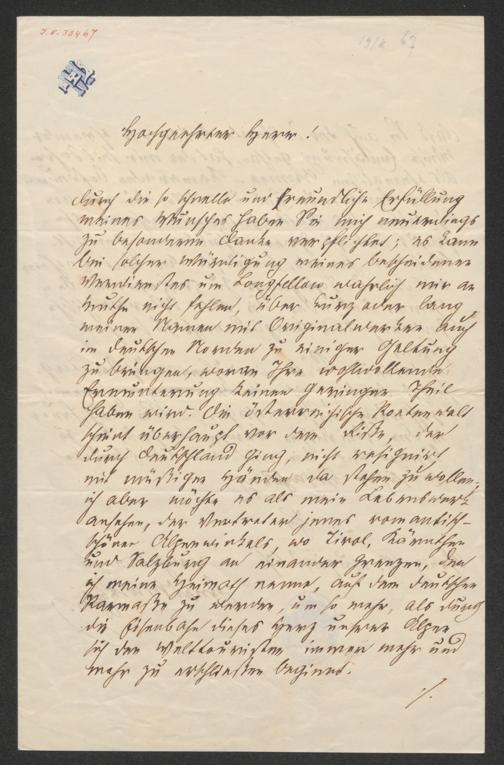 I.N. 33467
19/2 67
Hochgeehrter Herr!
durch die so schnelle und freundliche Erfüllung
meines Wunsches haben Sie mich neuerdings
zu besonderem Danke verpflichtet; es kann
bei solcher Würdigung meines bescheidenen
Verdienstes um Longfellow wahrlich mir an
Muthe nicht fehlen, über kurz oder lang
meinen Namen mit Originalwerken auch
im deutschen Norden zu einiger Geltung
zu bringen, woran Ihre wohlwollende
Ermunterung keinen geringen Theil
haben wird. Die österreichische Poetenwelt
scheint überhaupt vor dem Risse, der
durch Deutschland ging, nicht resignirt
mit müßigen Händen da stehen zu wollen;
ich aber möchte es als mein Lebenswerk
ansehen, der Vertreter jenes romantisch-
schönen Alpenwinkels, wo Tirol, Kärnthen
und Salzburg an einander grenzen, den
ich meine Heimath nenne, auf dem deutschen
Parnasse zu werden, um so mehr, als durch
die Eisenbahn dieses Herz unserer Alpen
sich den Welttouristen immer mehr und
mehr zu erschließen beginnt.
./.